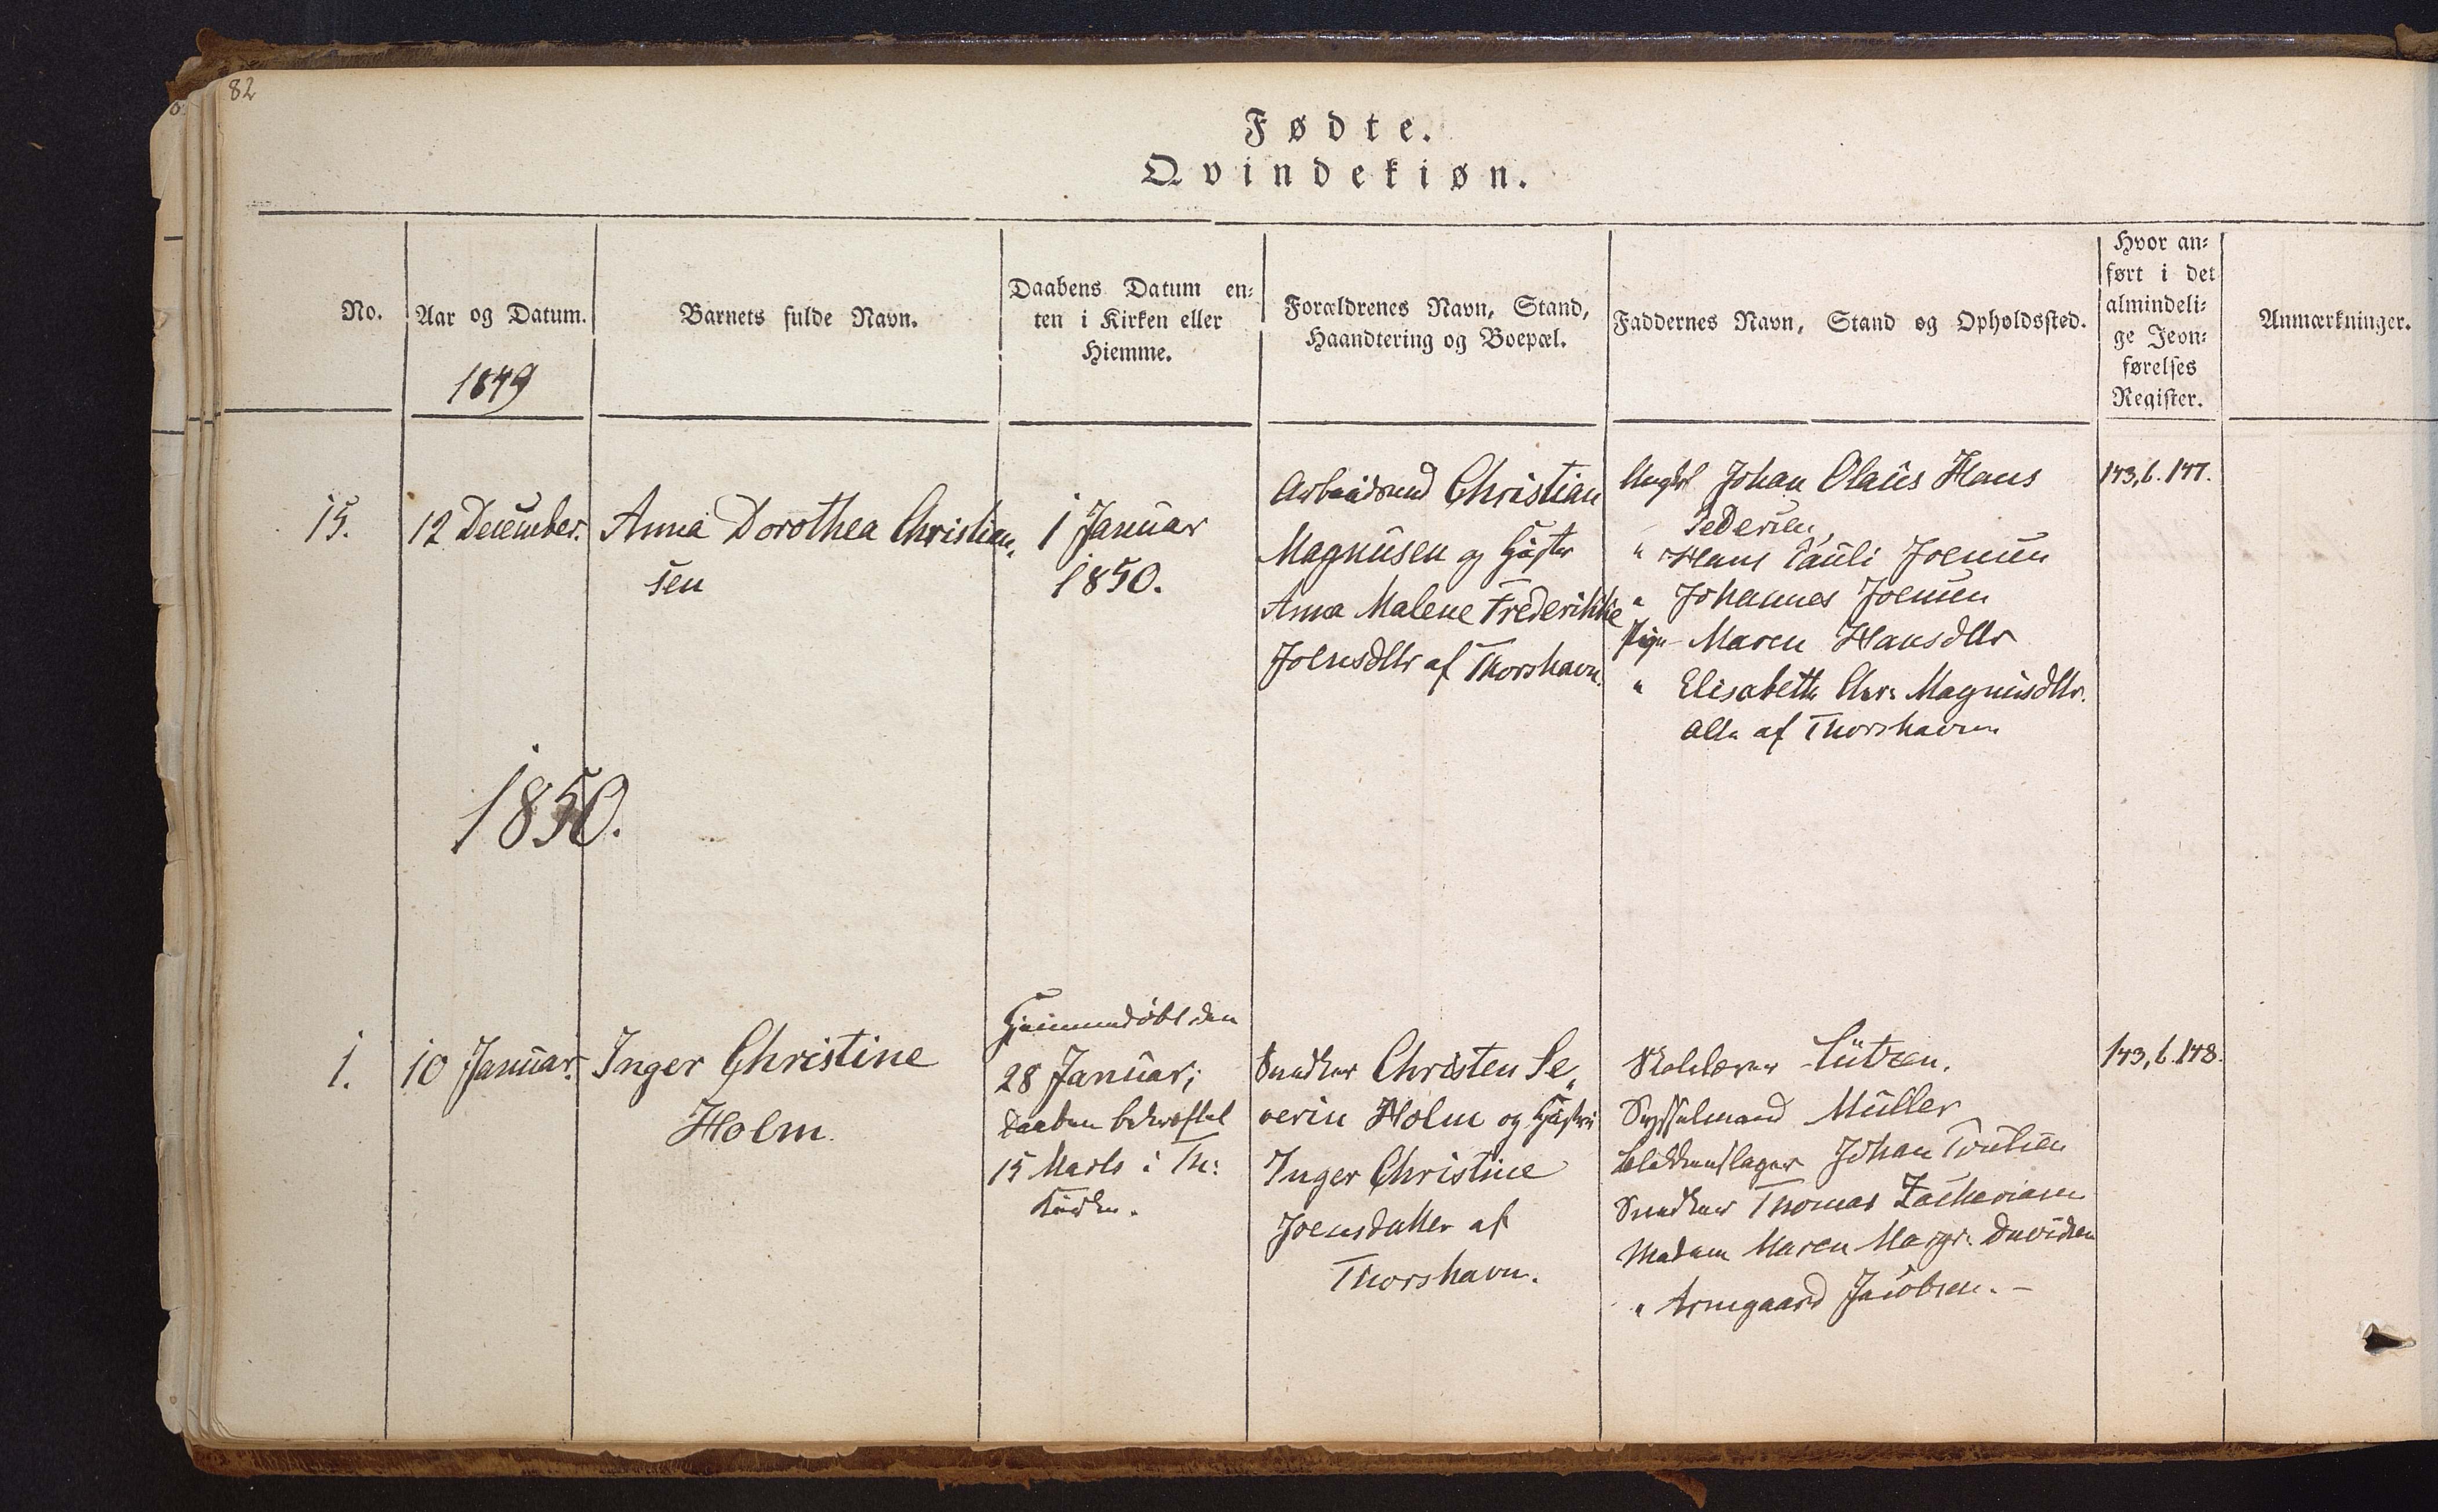 82
Fødte.
Qvindekiøn.
No.
Aar og Datum.
1849
Barnets fulde Navn.
Daabens Datum en-
ten i Kirken eller
Hiemme.
Forældrenes Navn, Stand,
Haandtering og Boepæl.
Faddernes Navn, Stand og Opholdssted.
Hvor an-
ført i det
almindeli-
ge Jevn-
førelses
Register.
Anmærkninger.
15.
12 December.
Anna Dorothea Christian-
sen
1 Januar
1850.
Arbeidsmd Christian
Magnusen og Hustr
Anna Malene Frederikke
Joensdttr af Thorshavn.
Ungkl Johan Olaus Hans
Pedersen,
" Hans Pauli Joensen
" Johannes Joensen
Pige Maren Hansdttr
" Elisabeth Chr. Magnusdttr.
alle af Thorshavn
143, b. 147.
1850.
1.
10 Januar.
Inger Christine
Holm.
Hjemmedøbt den
28 Januar;
Daaben bekræftet
15 Marts i Th:
Kirke.
Snedker Christen Se-
verin Holm og Hustru
Inger Christine
Joensdatter af
Thorshavn.
Skolelærer Lützen.
Sysselmand Müller
Johan Poulsen
Snedker Thomas Zachariasen
Madam Maren Margr. Davidsen
" Armgaard Jacobsen. -
143, b. 148.